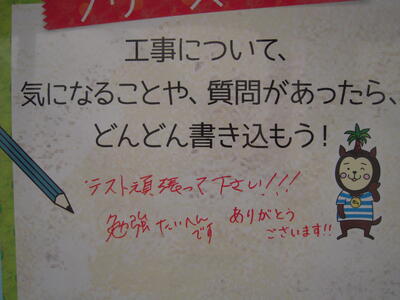 工事について、
気になることや、質問があったら、
どんどん書き込もう！
テスト頑張って下さい!!!
勉強たいへんです
ありがとうございます!!